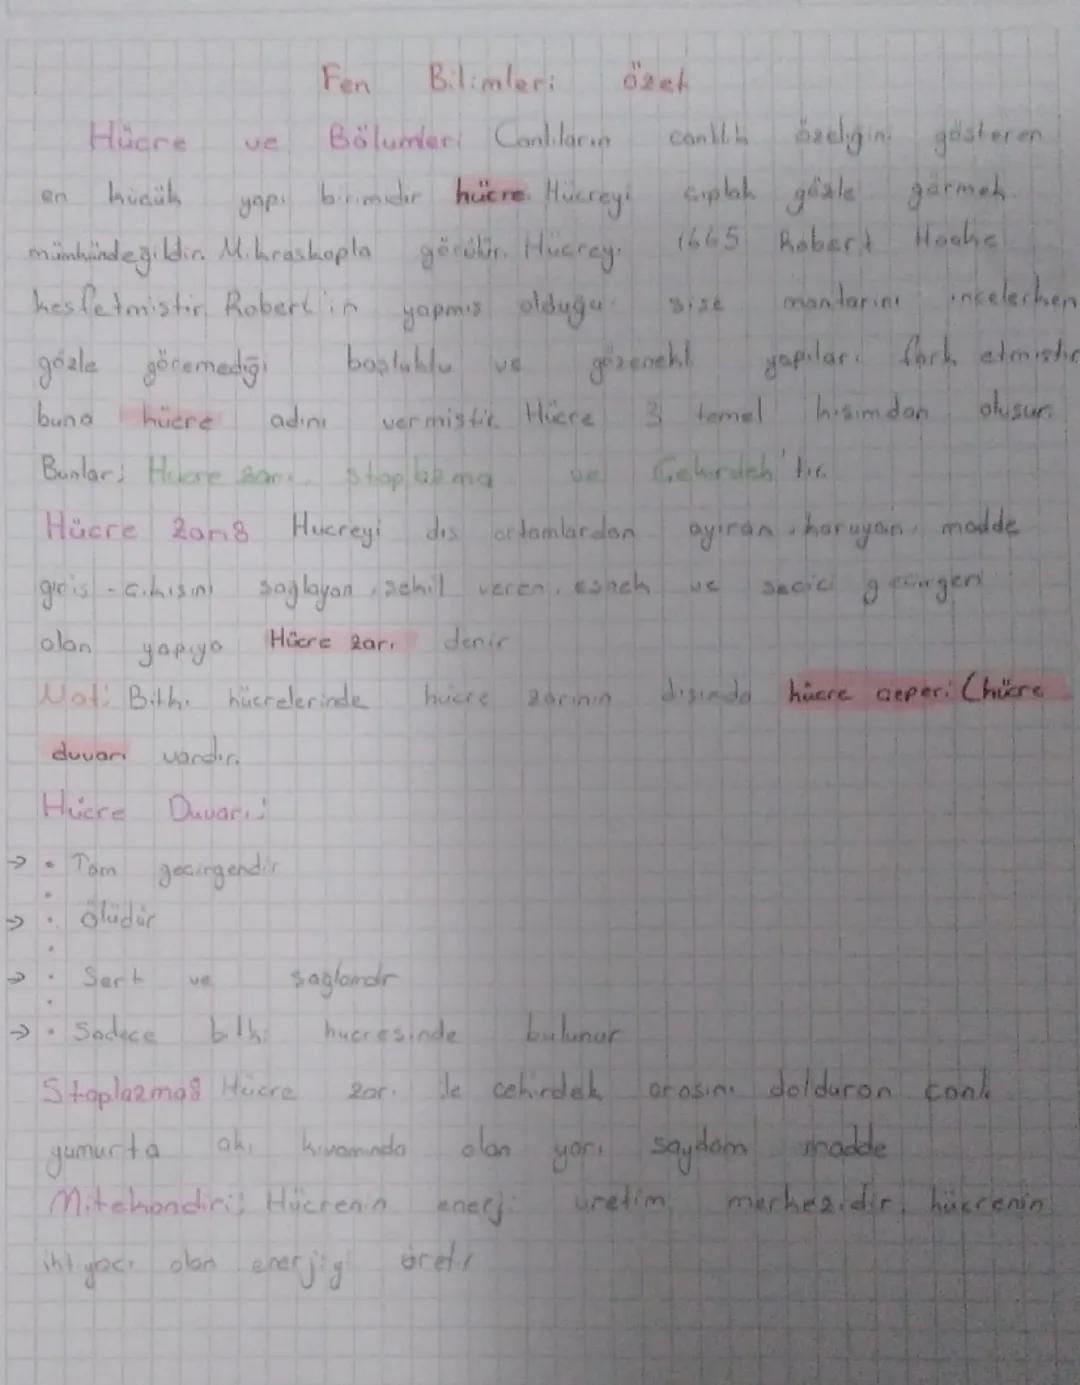 Fen Bilimleri özet
Hücre ve Bölümleri Canlıların canlılık özeliğini gösteren
en küçük yapı birimidir hücre. Hücreyi çıplak gözle görmek
mümkündeğildir. Mikraskopla görülür. Hücreyi 1665 Robert Hooke
kesfetmistir. Robert'in yapmıs olduğu sise mantarını incelerken
gözle göremediği bosluklu ve gözenekli yapıları fark etmistir
buna hücre adını vermistir. Hücre 3 temel kısımdan olusur.
Bunlar; Hücre zarı, stoplazma ve Çekirdek'tir.
Hücre zarı: Hucreyi dıs ortamlardan ayıran, koruyan, madde
giris - cıkısını sağlayan, sekil veren, esnek ve secici gecirgen
olan yapıya Hücre zarı denir
Not: Bitki hücrelerinde hücre zarının dısında hücre ceperi (hücre
duvarı vardır.
Hücre Duvarı:
→ • Tam gecirgendir
→ • Ölüdür
→ • Sert ve saglamdır
→ • Sadece bitki hucresinde bulunur
Stoplazma: Hücre zarı ile cekirdek arasını dolduran canlı
yumurta akı kıvamında olan yarı saydam madde
Mitokondiri; Hücrenin enerji uretim merkezidir, hücrenin
ihtiyacı olan enerjiyi üretir